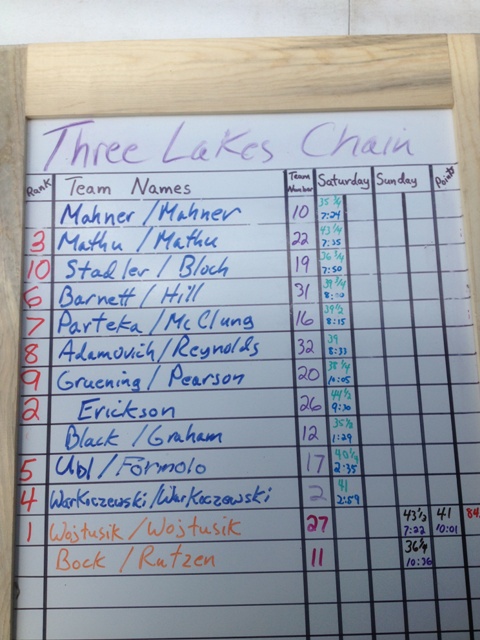 Three Lakes Chain
Rank Team Names Team Number Saturday Sunday Points
Mahner / Mahner 10 35 1/4 7:24
3 Mathu / Mathu 22 43 1/4 7:35
10 Stadler / Bloch 19 36 3/4 7:50
6 Barnett / Hill 31 39 3/4
7 Parteka / McClung 16 39 1/2 8:15
8 Adamovich / Reynolds 32 39 8:33
9 Gruening / Pearson 20 38 1/4 10:05
2 Erickson 26 44 1/2 9:30
Black / Graham 12 35 1/2 1:29
5 Ubl / Formolo 17 40 1/4 2:35
4 Warkoczewski / Warkoczewski 2 41 2:59
1 Wojtusik / Wojtusik 27 43 1/2 7:22 41 10:01 84
Bock / Rutzen 11 36 1/4 10:36